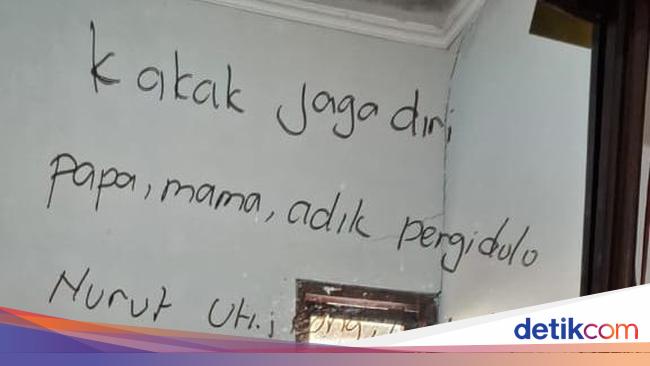 kakak jaga diri
papa, mama, adik pergi dulo
Nurut Uti,
detikcom